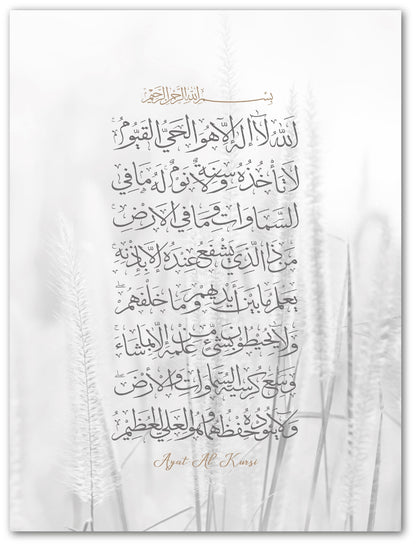 بسم الله الرحمن الرحيم
ٱللَّهُ لَا إِلَٰهَ إِلَّا هُوَ الْحَيُّ الْقَيُّومُ
لَا تَأْخُذُهُ سِنَةٌ وَلَا نَوْمٌ لَهُ مَا فِي
السَّمَاوَاتِ وَمَا فِي الْأَرْضِ
مَنْ ذَا الَّذِي يَشْفَعُ عِنْدَهُ إِلَّا بِإِذْنِهِ
يَعْلَمُ مَا بَيْنَ أَيْدِيهِمْ وَمَا خَلْفَهُمْ
وَلَا يُحِيطُونَ بِشَيْءٍ مِنْ عِلْمِهِ إِلَّا بِمَا شَاءَ
وَسِعَ كُرْسِيُّهُ السَّمَاوَاتِ وَالْأَرْضَ
وَلَا يَئُودُهُ حِفْظُهُمَا وَهُوَ الْعَلِيُّ الْعَظِيمُ
Ayat Al Kursi